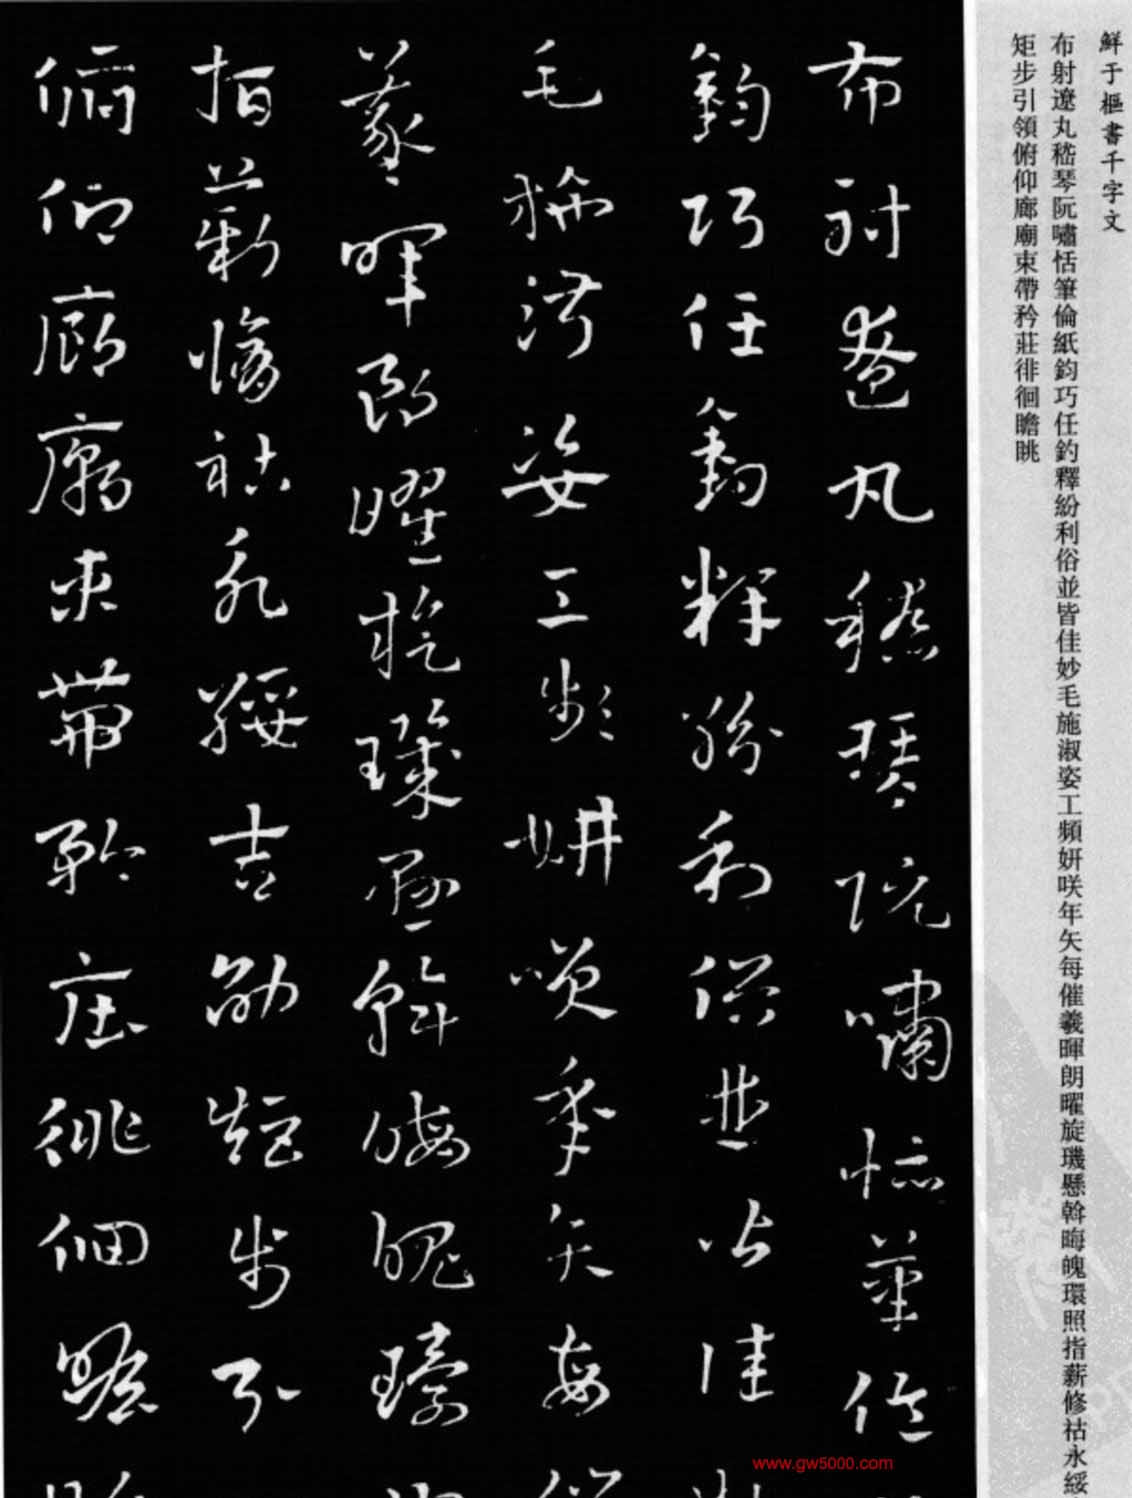 鮮于樞書千字文
布射遼丸嵇琴阮嘯恬筆倫紙鈞巧任釣釋紛利俗並皆佳妙毛施淑姿工頻妍咲年矢每催羲暉朗曜旋璣懸斡晦魄環照指薪修祜永綏
矩步引領俯仰廊廟束帶矜莊徘徊瞻眺
布射遼丸嵇琴阮嘯恬筆倫
鈞巧任釣釋紛利俗並皆佳
毛施淑姿工頻妍咲年矢每
羲暉朗曜旋璣懸斡晦魄環
指薪修祜永綏吉劭矩步引
俯仰廊廟束帶矜莊徘徊瞻
www.gw5000.com